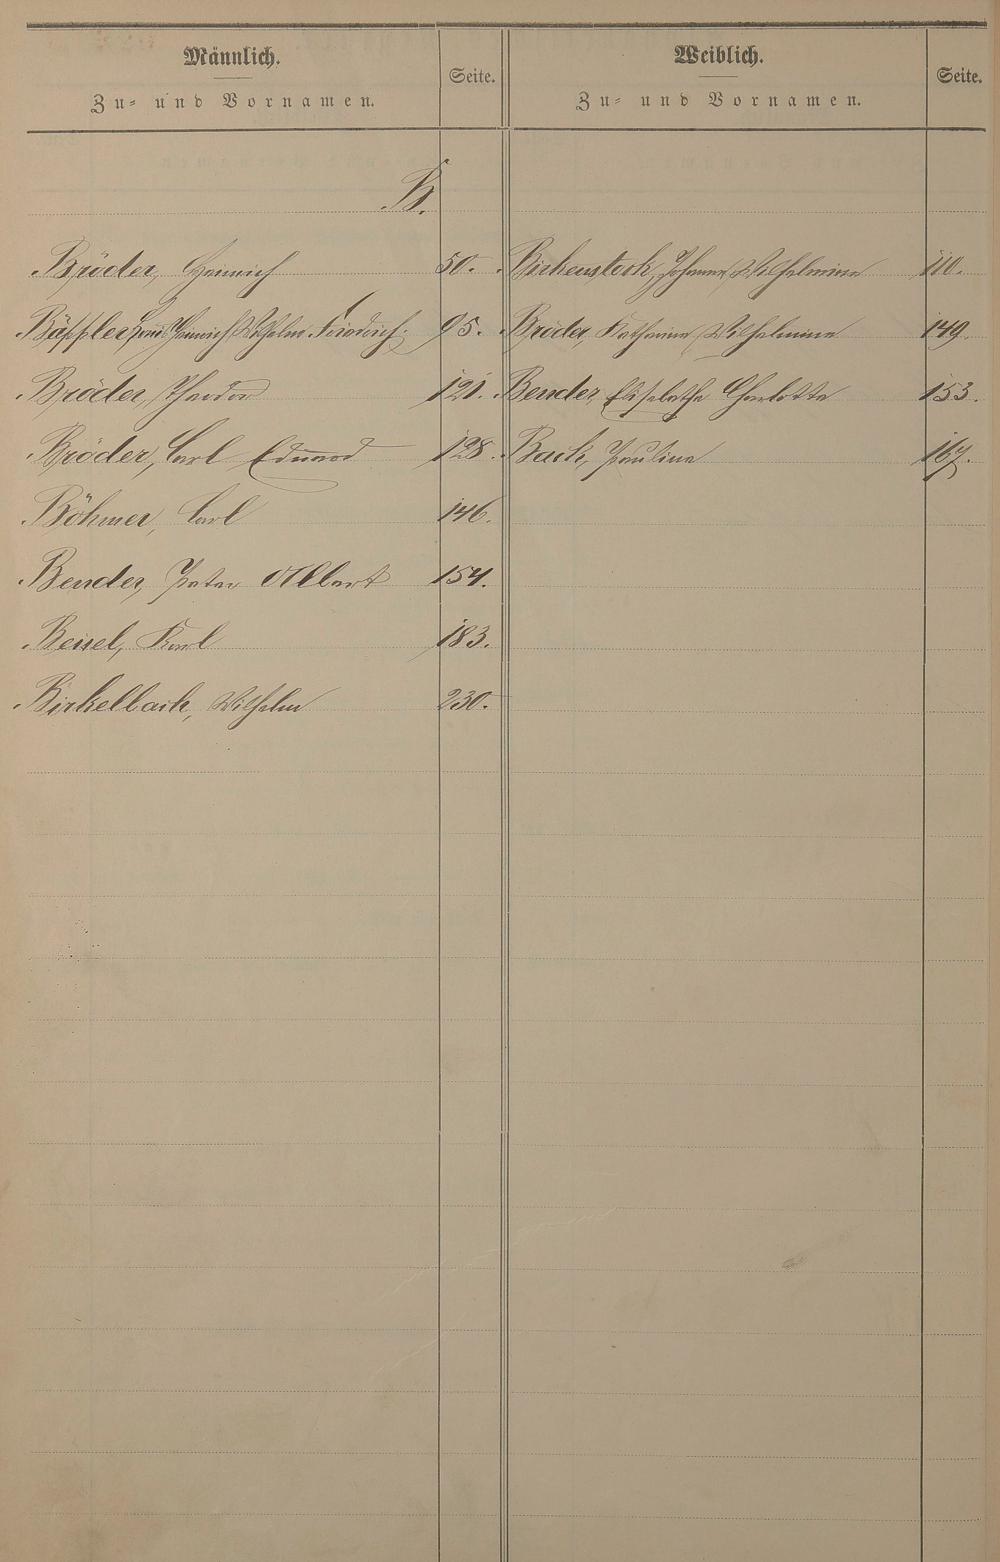 Männlich.
Zu- und Vornamen.
Seite.
Weiblich.
Zu- und Vornamen.
Seite.
B.
Bröder, Heinrich 50.
Bäppler, Heinrich Wilhelm Friedrich 95.
Bröder, Theodor 121.
Bröder, Carl Eduard 128.
Böhmer, Carl 146.
Bender, Peter Albert 154.
Beisel, Karl 183.
Birkelbach, Wilhelm 230.
Birkenstock, Johanna Wilhelmine 110.
Bröder, Katharine Wilhelmine 149.
Bender, Elisabethe Charlotte 153.
Back, Pauline 167.